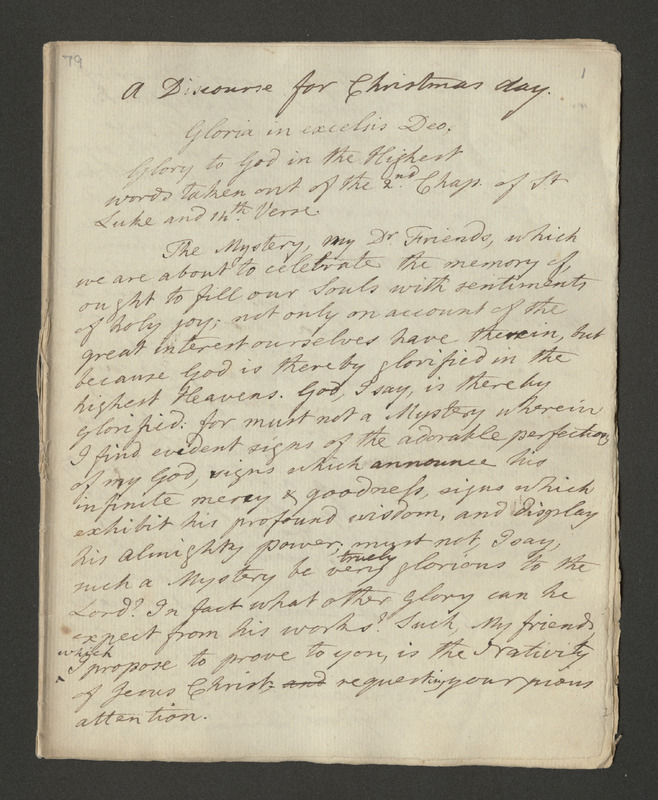 79
1
A Discourse for Christmas day.
Gloria in excelsis Deo.
Glory to God in the Highest
words taken out of the 2nd. Chap. of St
Luke and 14th Verse
The Mystery, my Dr Friends, which
we are about to celebrate the memory of,
ought to fill our Souls with sentiments
of holy joy; not only on account of the
great interest ourselves have therein, but
because God is thereby glorified in the
highest Heavens. God, I say, is thereby
glorified: for must not a Mystery wherein
I find evident signs of the adorable perfections
of my God, signs which announce his
infinite mercy & goodness, signs which
exhibit his profound wisdom, and display
his almighty power, must not, I say,
truely
such a Mystery be very glorious to the
Lord? In fact what other Glory can he
expect from his works? Such, My friends,
which
I propose to prove to you, is the Nativity
of Jesus Christ, and requesting your pious
attention.